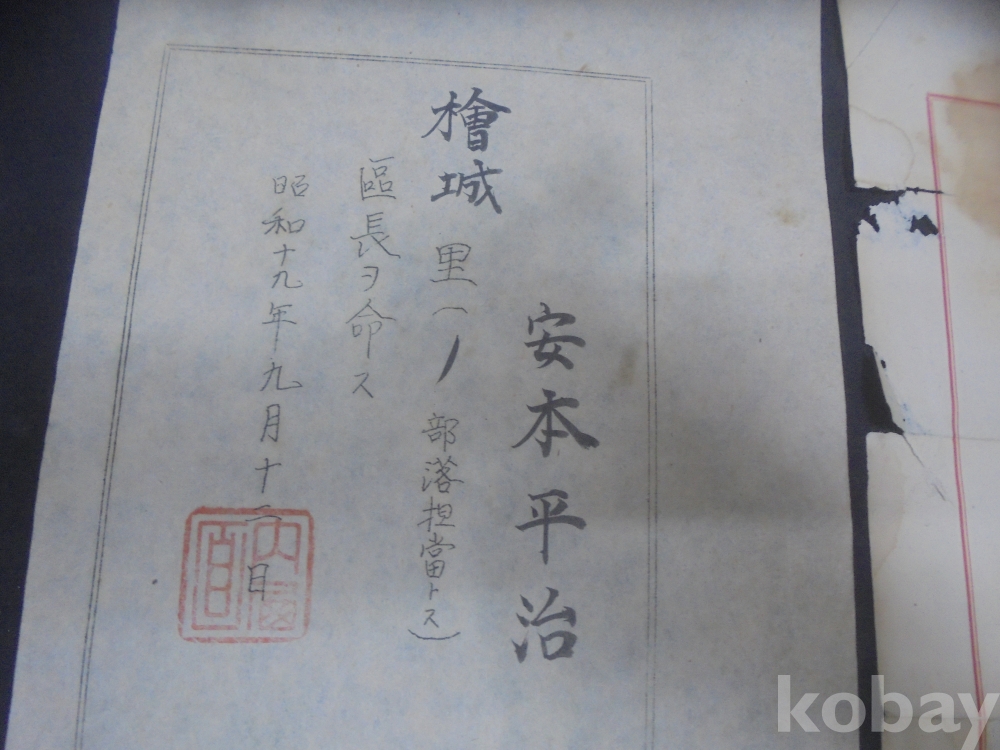 安本平治
檜城里(ノ部落担當トス)
區長ヲ命ス
昭和十九年九月十二日
kobay